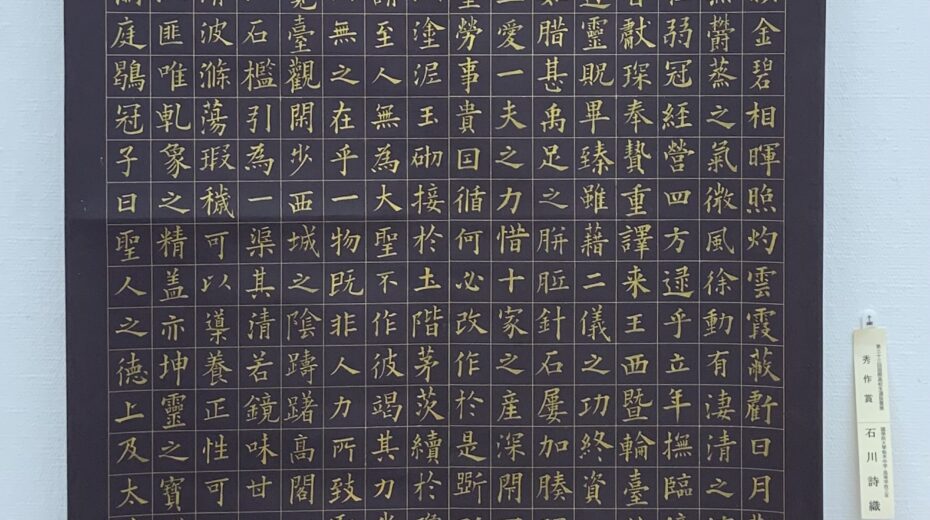 金碧相暉照灼雲霞蔽虧日月
欝蒸之氣微風徐動有淒清之
弱冠經營四方逮乎立年撫臨
獻琛奉贄重譯来王西暨輪臺
靈貺畢臻雖藉二儀之功終資
腊甚禹足之胼胝針石屢加腠
愛一夫之力惜十家之産深閇
勞事貴因循何必改作於是斵
塗泥玉砌接於土階茅茨續於
至人無為大聖不作彼竭其力
無之在乎一物既非人力所致
臺觀閑步西城之陰躊躇高閣
石檻引為一渠其清若鏡味甘
波滌蕩瑕穢可以導養正性可
匪唯乹象之精盖亦坤靈之寶
庭鶡冠子曰聖人之德上及太
秀作賞
石川詩織